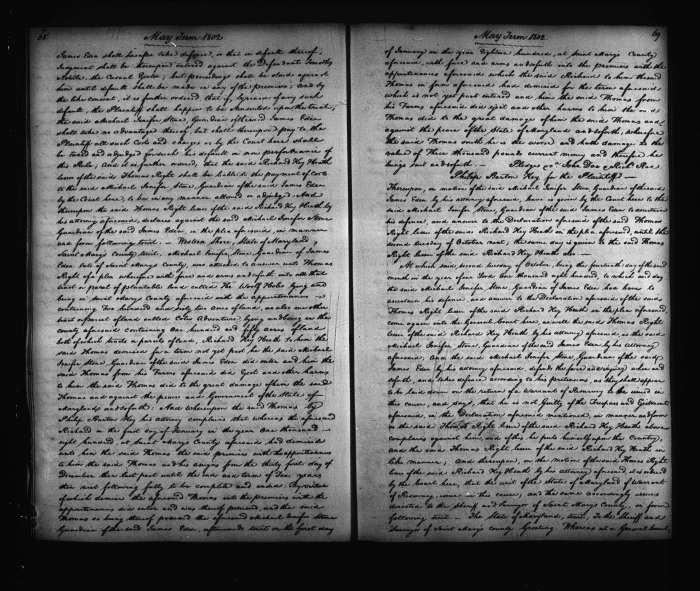 68 May Term 1802
James Eden shall hereafter take defence, is that in default thereof,
Judgment shall be thereupon entered against the Defendant Timothy
the Casual Ejector; but proceedings shall be stayed against
him until default shall be made in any of the premises; And by
the like consent, it is further ordered, that if by reason of any such
default, the Plaintiff shall happen to be Nonsuited upon the trial,
the said Michael Jenifer Stone, Guardian of the said James Eden
shall take no advantage thereof, but shall thereupon pay to the
Plaintiff all such Costs and charges as by the Court here shall
be taxed and adjudged for such his default in non performance of
this Rule; And it is further ordered, that the said Richard Key Heath
lessor of the said Thomas Right shall be liable to the payment of Costs
to the said Michael Jenifer Stone, Guardian of the said James Eden
by the Court here, to be in any manner allowed or adjudged. And
thereupon the said Thomas Right lessee of the said Richard Key Heath by
his attorney aforesaid, declares against the said Michael Jenifer Stone
Guardian of the said James Eden, in the plea aforesaid, in manner
and form following to wit. Western Shore, State of Maryland,
Saint Mary's County Scil. Michael Jenifer Stone, Guardian of James
Eden late of Saint Mary's County, was attached to answer unto Thomas
Right of a plea wherefore with force and arms and so forth into all that
tract or parcel of plantable land called The Wolf Holes lying and
being in Saint Mary's County aforesaid with the appurtenances
containing Two hundred and sixty two acres of land, as also one other
tract or parcel of land called Coles Adventure lying and being in the
county aforesaid containing One hundred and fifty acres of land
both of which tracts or parcels of land, Richard Key Heath to him the
said Thomas demised for a term not yet past he the said Michael
Jenifer Stone, Guardian of the said James Eden did enter and him the
said Thomas from his Farms aforesaid did Eject and other harms
to him the said Thomas did to the great damage of him the said
Thomas and against the peace and Government of the State of
Maryland and so forth; And whereupon the said Thomas by
Philip Barton Key his attorney complains that whereas the aforesaid
Richard on the first day of January in the year One thousand
eight hundred, at Saint Mary's County aforesaid had demised
unto him the said Thomas the said premises with the appurtenances
to him the said Thomas and his assigns from the thirty first day of
December then last past until the end and Term of Ten years
then next following fully to be complete and ended By virtue
of which demise the aforesaid Thomas into the premises with the
appurtenances did enter and was thereof possessed, and the said
Thomas so being thereof possessed the aforesaid Michael Jenifer Stone
Guardian of the said James Eden, afterwards to wit on the first day
May Term 1802 69
of January in the year Eighteen hundred, at Saint Mary's County
aforesaid, with force and arms and so forth into the premises with the
appurtenances aforesaid which the said Richard to him the said
Thomas in form aforesaid had demised for the term aforesaid
which is not yet past entered and him the said Thomas from
his Farms aforesaid did eject and other harms to him the said
Thomas did to the great damage of him the said Thomas and
against the peace of the State of Maryland and so forth, wherefore
the said Thomas saith he is the worse and hath damage to the
value of Three thousand pounds current money and therefore he
brings suit and so forth. Pledges &c John Doe & Rich.d Roe
Philip Barton Key for the Plaintiff
Thereupon, on motion of the said Michael Jenifer Stone Guardian of the said
James Eden by his attorney aforesaid, leave is given by the Court here to the
said Michael Jenifer Stone, Guardian of the said James Eden to ascertain
his defence, and answer to the Declaration aforesaid of the said Thomas
Right lessee of the said Richard Key Heath in the plea aforesaid, until the
second tuesday of October next, the same day is given to the said Thomas
Right lessee of the said Richard Key Heath also
At which said second tuesday of October, being the fourteenth day of the said
month in the year of our Lord One thousand eight hundred, to which said day
the said Michael Jenifer Stone, Guardian of James Eden had leave to
ascertain his defence, and answer to the Declaration aforesaid of the said
Thomas Right lessee of the said Richard Key Heath in the plea aforesaid,
come again into the General Court here, as well the said Thomas Right
lessee of the said Richard Key Heath by his attorney aforesaid, as the said
Michael Jenifer Stone, Guardian of the said James Eden by his attorney
aforesaid; And the said Michael Jenifer Stone, Guardian of the said
James Eden, by his attorney aforesaid, defends the force and injury when and
so forth, and takes defence according to his pretensions, as they shall appear
to be laid down on the return of a warrant of Resurvey to be issued in
this cause, and says, that he is not Guilty of the Trespass and Ejectment
aforesaid, in the Declaration aforesaid mentioned, in manner and form
as the said Thomas Right lessee of the said Richard Key Heath above
complains against him, and of this he puts himself upon the Country,
and the said Thomas Right lessee of the said Richard Key Heath in
like manner; And thereupon, on the motion of the said Thomas Right
lessee of the said Richard Key Heath by his attorney aforesaid, it is ordered
by the Court here, that the writ of the State of Maryland of Warrant
of Resurvey issue in this cause, and the same accordingly issues
directed to the Sheriff and Surveyor of Saint Mary's County, in form
following to wit. The State of Maryland, to wit, To the Sheriff and
Surveyor of Saint Mary's County, Greeting. Whereas at a General Court